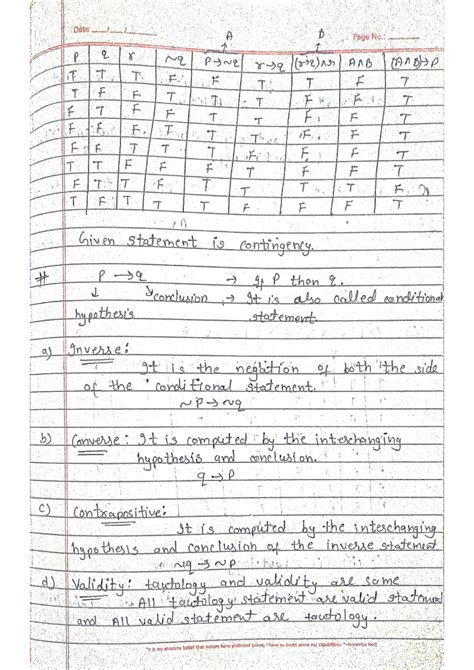 A B
Date Page No.:
P q r ~q P→~q r→q (r→q)∧r A∧B (A∧B)→P
T T T F F T T F T
T F F T T T F F T
F T F F T T F F T
F F F T T T F F T
F F T T T F F F T
T T F F F T F F T
F T T F T T T T F
T F T T T F F F T
Given statement is contingency.
# P → q → If P then q.
↓ ↘conclusion → It is also called conditional
hypothesis statement.
a) Inverse:
It is the negation of both the side
of the conditional statement.
~P→~q
b) Converse: It is computed by the interchanging
hypothesis and conclusion.
q→P
c) Contrapositive:
It is computed by the interchanging
hypothesis and conclusion of the inverse statement
~q→~P
d) Validity: tautology and validity are same
All tautology statement are valid statement
and All valid statement are tautology.